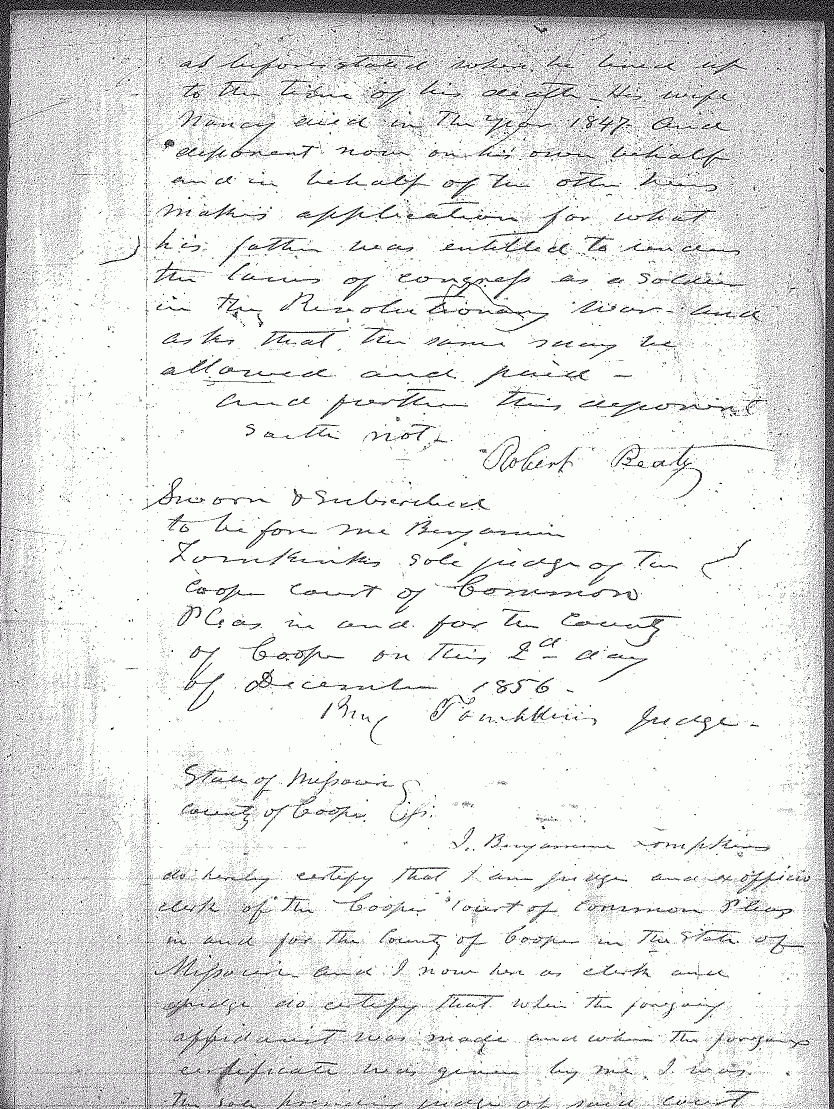 as before stated where he lived up
to the time of his death - His wife
Nancy died in the year 1847. And
deponent now on his own behalf
and in behalf of the other heirs
makes application for what
his father was entitled to under
the laws of congress as a soldier
in the Revolutionary War - and
asks that the same may be
allowed and paid -
and further this deponent
saith not -
Robert Beaty
Sworn & Subscribed
to before me Benjamin
Tompkins sole judge of the
Cooper court of Common
Pleas in and for the County
of Cooper on this 2d day
of December 1856 -
Benj Tompkins Judge -
State of Missouri
County of Cooper
I, Benjamin Tompkins
do hereby certify that I am judge and ex officio
clerk of the Cooper Court of Common Pleas
in and for the County of Cooper in the State of
Missouri and I now here as clerk and
judge do certify that when the foregoing
affidavit was made and when the foregoing
certificate was given by me, I was
the sole presiding judge of said court